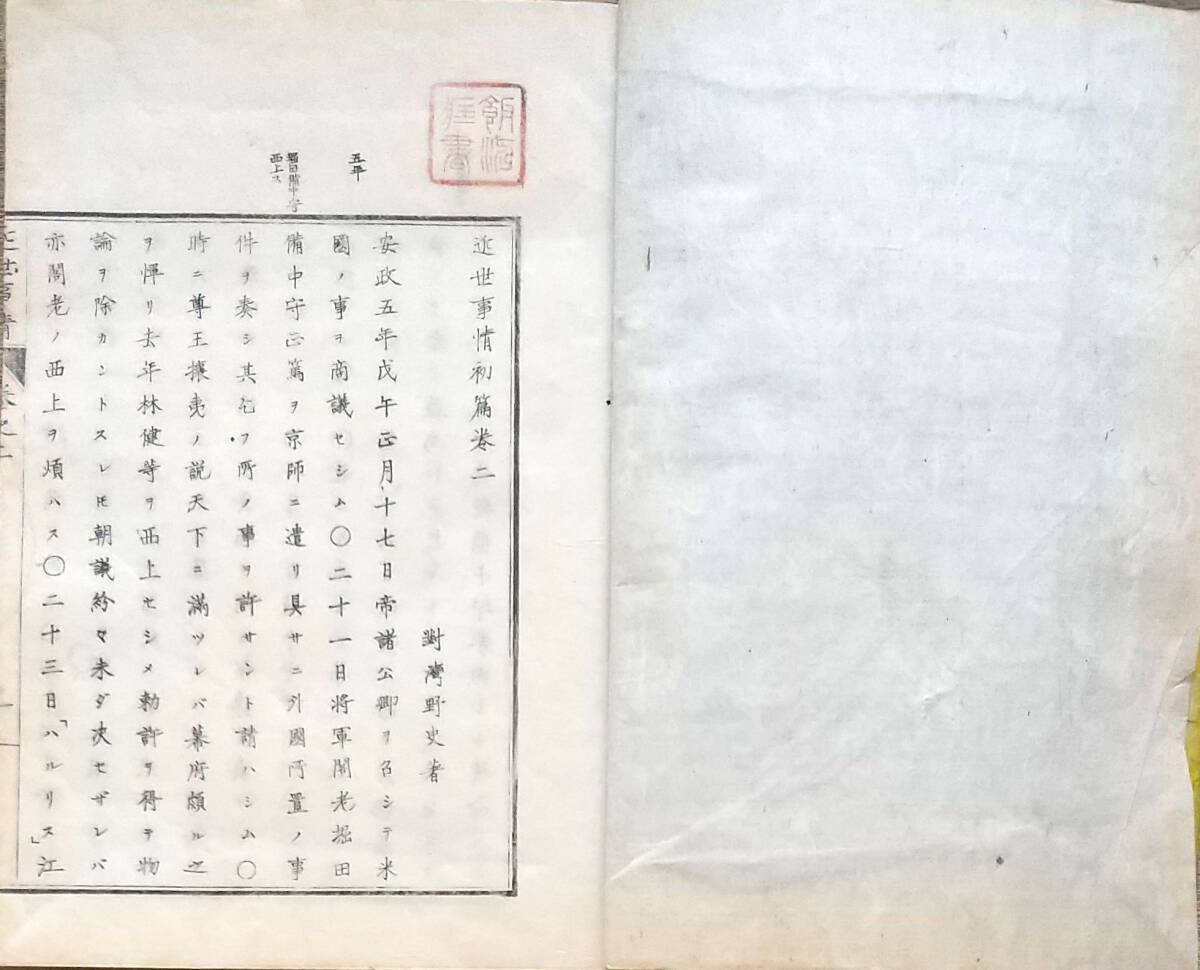 五年
堀田備中守
西上ス
近世事情初篇卷二
對灣野史著
安政五年戊午正月十七日帝諸公卿ヲ召シテ米
國ノ事ヲ商議セシム〇二十一日将軍閣老堀田
備中守正篤ヲ京師ニ遣リ具サニ外國所置ノ事
件ヲ奏シ其乞フ所ノ事ヲ許サント請ハシム〇
時ニ尊王攘夷ノ説天下ニ滿ツレバ幕府頗ル之
ヲ憚リ去年林健等ヲ西上セシメ勅許ヲ得テ物
論ヲ除カントスレ𪜈朝議紛々未ダ决セザレバ
亦閣老ノ西上ヲ煩ハス〇二十三日「ハルリス」江
近世事情 卷之二 一